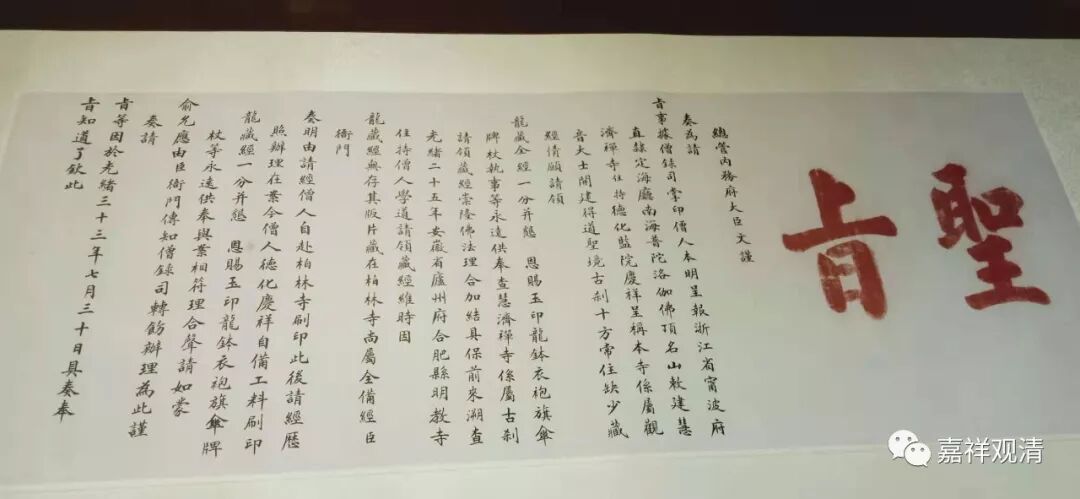 聖旨
總管內務府大臣文謹
奏為請
旨事據僧錄司掌印僧人本明呈報浙江省甯波府
直隸定海廳南海普陀洛伽佛頂名山敕建慧
濟禪寺住持德化監院慶祥呈稱本寺係屬觀
音大士開建得道聖境古刹十方常住缺少藏
經情願請領
龍藏全經一分并懇 恩賜玉印龍鉢衣袍旗傘
牌杖執事等永遠供奉查慧濟禪寺係屬古刹
請領藏經崇隆佛法理合加結具保前來溯查
光緒二十五年安徽省廬州府合肥縣明教寺
住持僧人學道請領藏經維時因
龍藏經無存其版片藏在柏林寺尚屬全備經臣
衙門
奏明由請經僧人自赴柏林寺刷印此後請經歷
照辦理在案今僧人德化慶祥自備工料刷印
龍藏經一分并懇 恩賜玉印龍鉢衣袍旗傘牌
杖等永遠供奉與案相符理合聲請如蒙
俞允應由臣衙門傳知僧錄司轉飭辦理為此謹
奏請
旨等因於光緒三十三年七月三十日具奏奉
旨知道了欽此
嘉祥观清